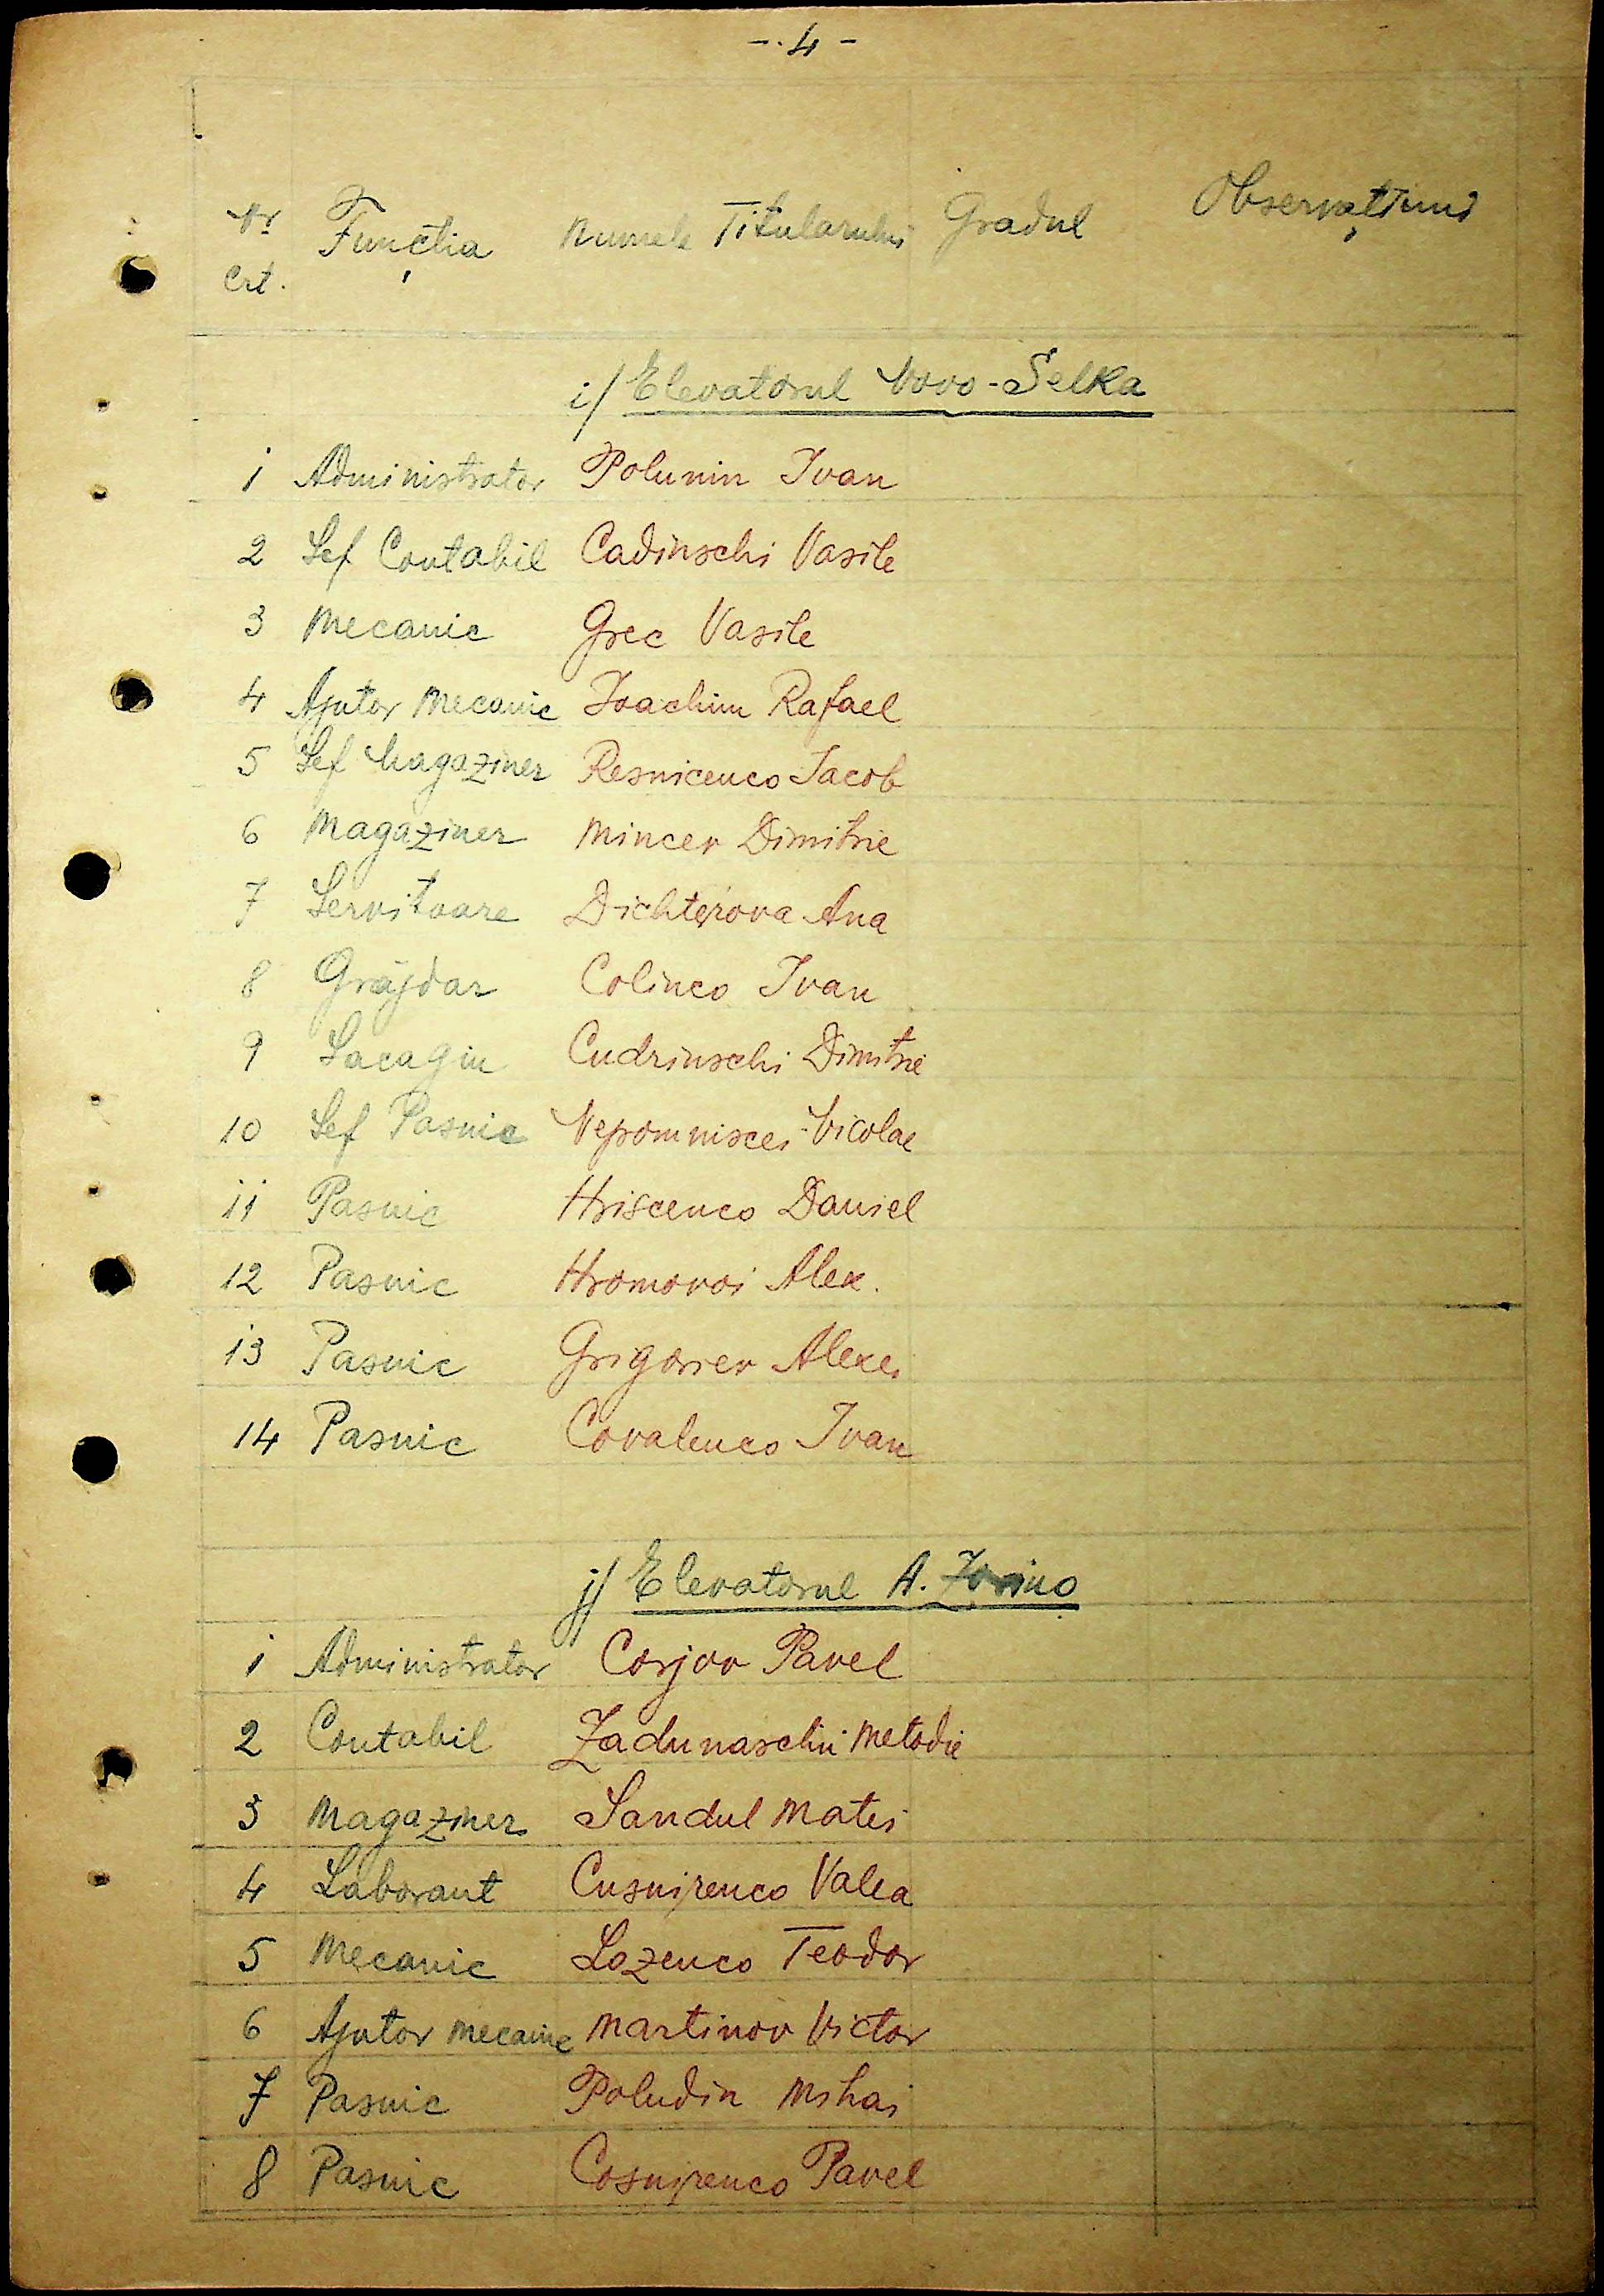 - 4 -
Nr Crt. Funcția Numele Titularului Gradul Observațiuni
i/ Elevatorul Novo-Selka
1 Administrator Polunin Ivan
2 Sef Contabil Cadinschi Vasile
3 Mecanic Grec Vasile
4 Ajutor Mecanic Ioachim Rafael
5 Sef Magaziner Resnicenco Iacob
6 Magaziner Mincev Dimitrie
7 Servitoare Dichterova Ana
8 Grăjdar Colinco Ivan
9 Sacagiu Cudrinschi Dimitrie
10 Sef Pasnic Nepomniscei Nicolae
11 Pasnic Hriscenco Daniel
12 Pasnic Hromovoi Alex.
13 Pasnic Grigoriev Alexei
14 Pasnic Covalenco Ivan
j/ Elevatorul A.
1 Administrator Corjov Pavel
2 Contabil Zadunaschii Metodie
3 Magaziner Sandul Matei
4 Laborant Cusnirenco Valea
5 Mecanic Lozenco Teodor
6 Ajutor Mecanic Martinov Victor
7 Pasnic Poludin Mihai
8 Pasnic Cosnirenco Pavel